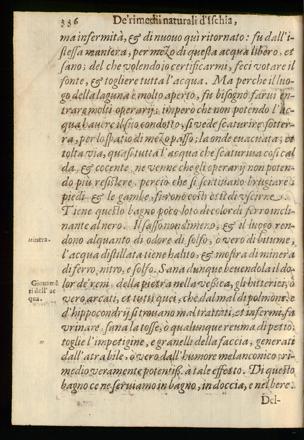 336 De' rimedii naturali d'Ischia,
ma infermità, & di nuouo quì ritornato: fu dall'i-
stessa maniera, per mezo di questa acqua libero, et
sano; del che volendo io certificarmi, feci votare il
fonte, & togliere tutta l'acqua. Ma perche il luo-
go della laguna è molto aperto, fu bisogno farui en-
trare molti operarij: imperò che non potendo l'ac-
qua hauere il suo condotto, si vede scaturire sotter-
ra, per lo spatio di mezo passo; la onde euacuata, et
tolta via, quasi tutta l'acqua che scaturiua così cal-
da, & cocente, ne venne che gli operarij non poten-
do più resistere, percio che si sentiuano brusciare i
piedi, & le gambe, furono costretti di uscirne.
Tiene questo bagno poco loto di color di ferro incli-
nante al nero. Il sasso
alquanto di odore di solfo, o vero di bitume,
l'acqua distillata tiene halito, & mostra di minera
di ferro, nitro, e solfo. Sana dunque beuendola il do-
lor de' reni, della pietra nella vessica, gli hitterici, ò
vero arcati, et tutti quei, che dal mal di polmone, e
d'hippocondrij si trouano mal trattati, et infermi, fa
vrinare, sana la tosse, ò qualunque reuma di petto,
toglie l'impetigine, e granelli della faccia, generati
dall'atrabile, o vero dall'humore melanconico: ri-
medio veramente potentiss. à tale effetto. Di questo
bagno ce ne seruiamo in bagno, in doccia, e nel bere:
Del-
minera.
Giouamē
ti dell'ac
qua.